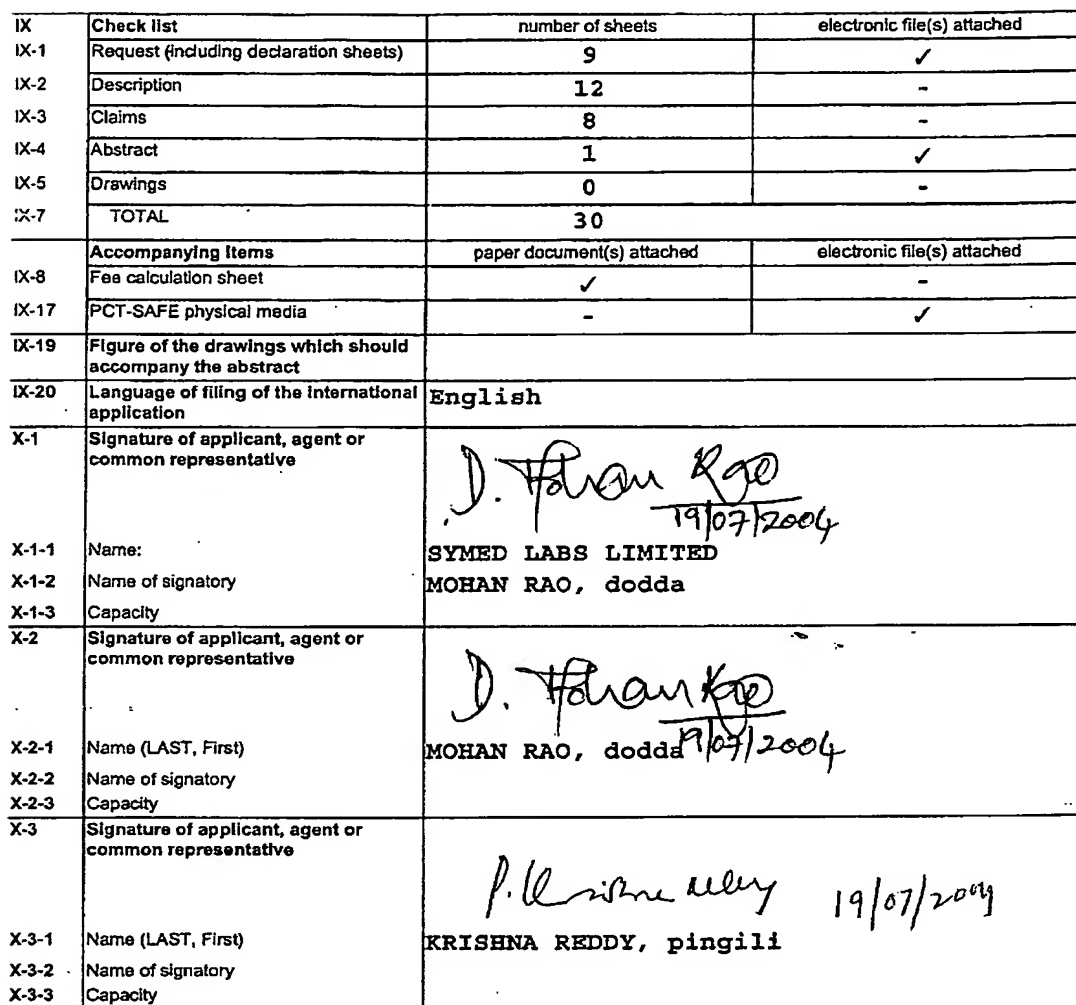 IX Check list number of sheets electronic file(s) attached
IX-1 Request (including declaration sheets) 9 ✓
IX-2 Description 12 -
IX-3 Claims 8 -
IX-4 Abstract 1 ✓
IX-5 Drawings 0 -
IX-7 TOTAL 30
Accompanying Items paper document(s) attached electronic file(s) attached
IX-8 Fee calculation sheet ✓ -
IX-17 PCT-SAFE physical media - ✓
IX-19 Figure of the drawings which should
accompany the abstract
IX-20 Language of filing of the international English
application
X-1 Signature of applicant, agent or
common representative
D. Mohan Rao
19/07/2004
X-1-1 Name: SYMED LABS LIMITED
X-1-2 Name of signatory MOHAN RAO, dodda
X-1-3 Capacity
X-2 Signature of applicant, agent or
common representative
D. Mohan Rao
X-2-1 Name (LAST, First) MOHAN RAO, dodda 19/07/2004
X-2-2 Name of signatory
X-2-3 Capacity
X-3 Signature of applicant, agent or
common representative
P. Krishna Reddy 19/07/2004
X-3-1 Name (LAST, First) KRISHNA REDDY, pingili
X-3-2 Name of signatory
X-3-3 Capacity